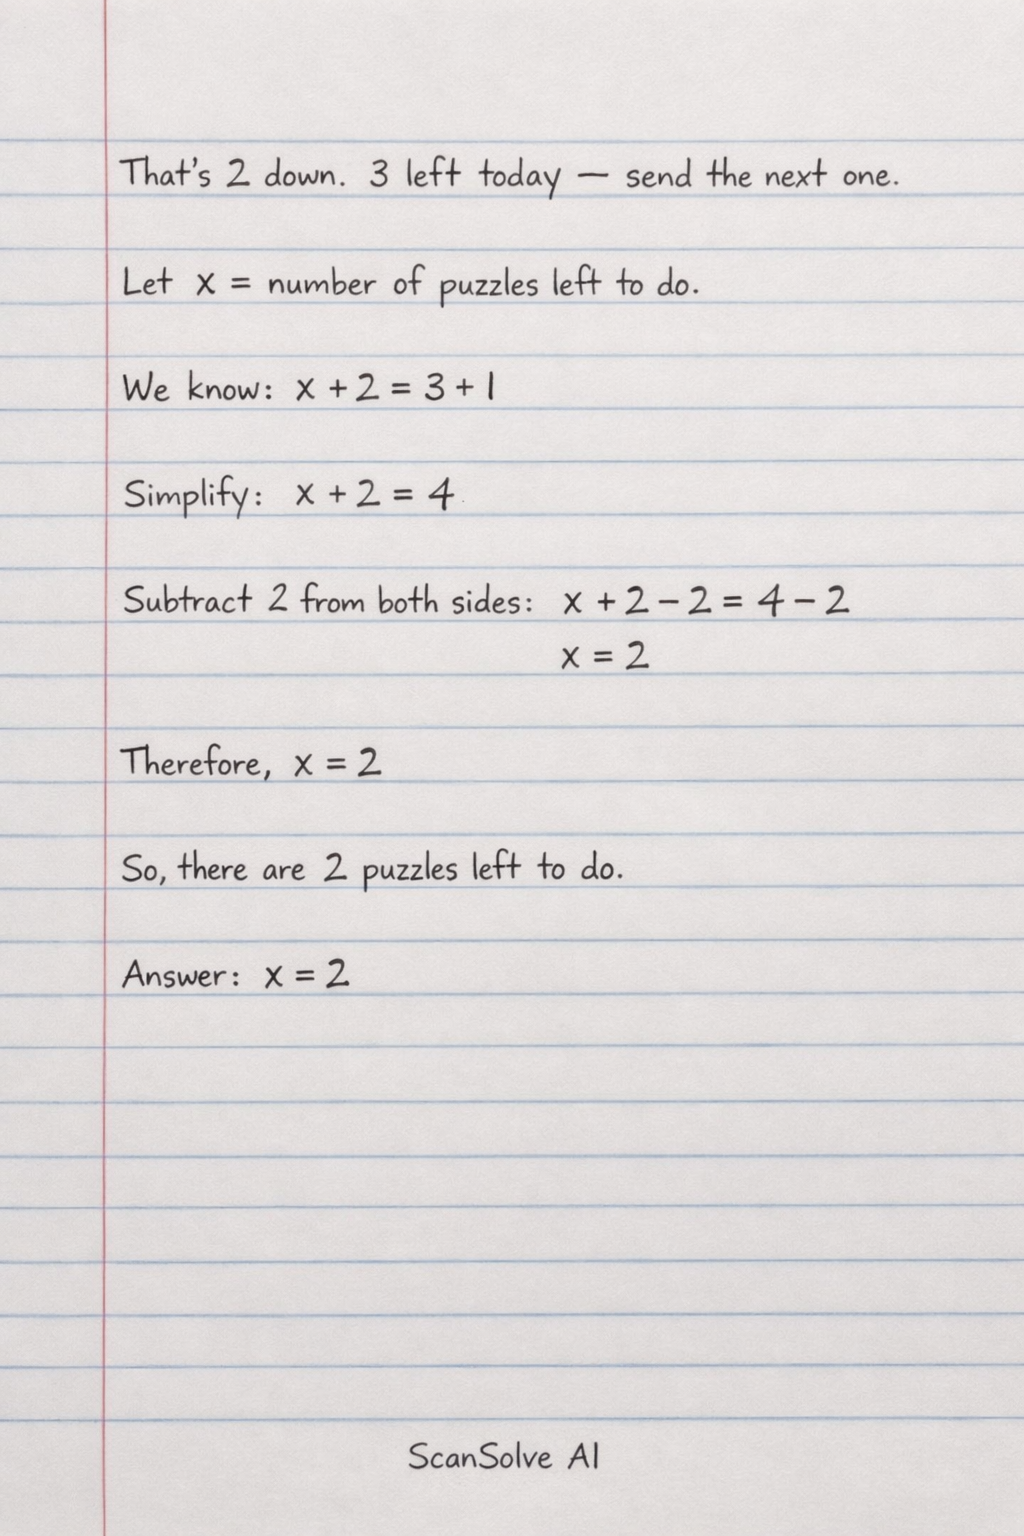 That's 2 down. 3 left today — send the next one.
Let x = number of puzzles left to do.
We know: x + 2 = 3 + 1
Simplify: x + 2 = 4
Subtract 2 from both sides: x + 2 - 2 = 4 - 2
x = 2
Therefore, x = 2
So, there are 2 puzzles left to do.
Answer: x = 2
ScanSolve AI